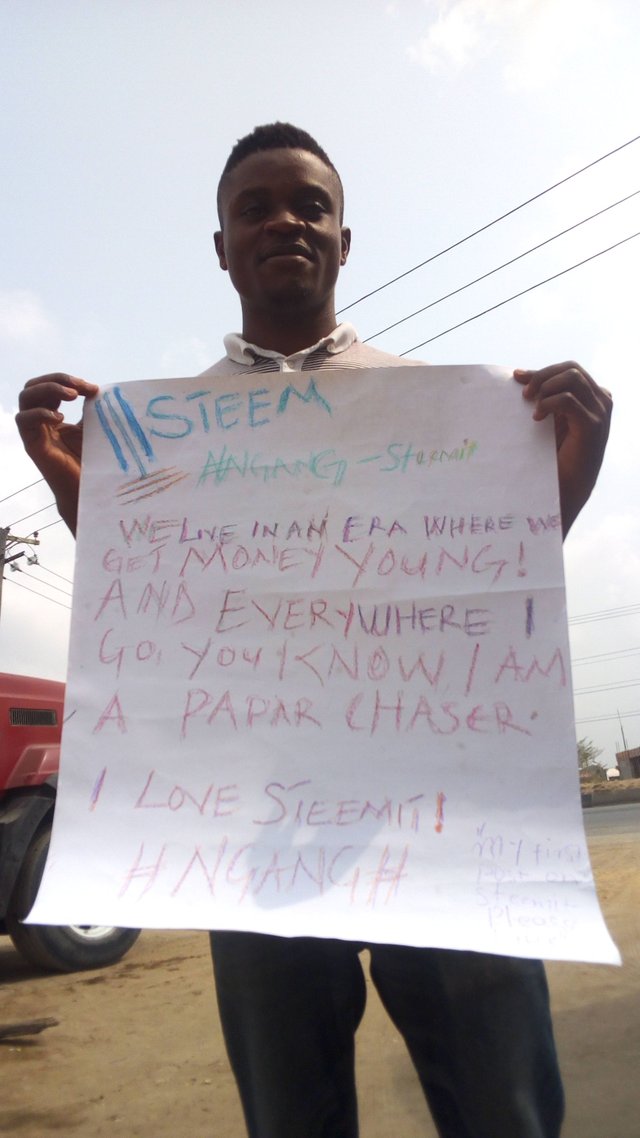 STEEM
#NGANG-Steemit
WE LIVE IN AN ERA WHERE WE
GET MONEY YOUNG!
AND EVERYWHERE I
GO, YOU KNOW I AM
A PAPAR CHASER.
I LOVE STEEMIT!
#NGANG#
"My first
Post on
Steemit
Please